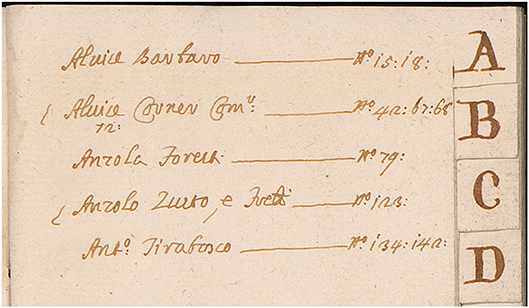 Aluice Barbaro — No 15: 18:
Aluice Corner Com.r: — No 42: 67: 68
72:
Anzola Foresti — No 79:
Anzolo Zusto, e Frelli — No 123:
Ant.o Tirabosco — No 134: 142:
A
B
C
D